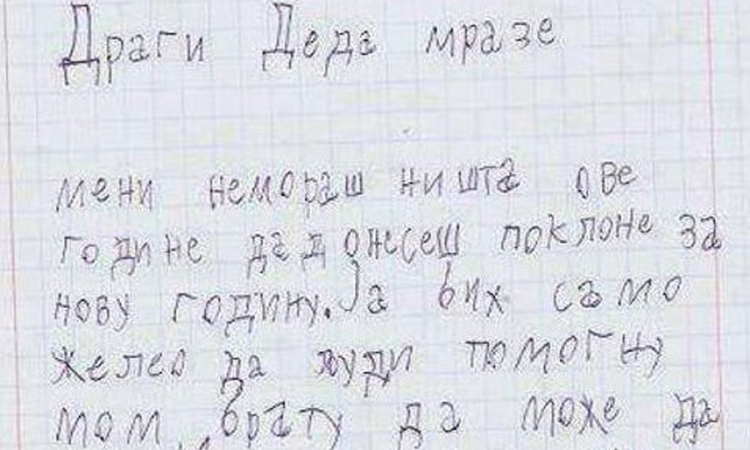 Драги Деда мразе
мени немораш ништа ове
године да донесеш поклоне за
нову годину. Ја бих само
желео да људи помогну
мом брату да може да